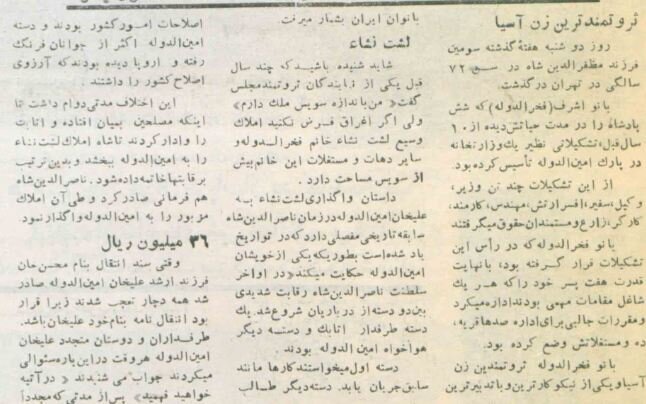 ثروتمندترین زن آسیا
روز دو شنبه هفتهٔ گذشته سومین
فرزند مظفرالدین شاه در سن ۷۲
سالگی در تهران درگذشت.
بانو اشرف (فخرالدوله) که شش
پادشاه را در مدت حیاتش دیده از ۶۰
سال قبل، تشکیلاتی نظیر یك وزارتخانه
در پارك امین‌الدوله تأسیس کرده بود.
از این تشکیلات چند تن وزیر،
وکیل، سفیر، افسر ارتش، مهندس، کارمند،
کارگر، زارع و مستمندان حقوق میگرفتند
بانو فخرالدوله که در رأس این
تشکیلات قرار گرفته بود، بانهایت
قدرت هفت پسر خود را که هر یك
شاغل مقامات مهمی بودند اداره میکرد
و مقررات جالبی برای اداره صدها قریه،
ده و مستغلاتش وضع کرده بود.
بانو فخرالدوله ثروتمندین زن
آسیا و یکی از نیکو کارترین و با تدبیرترین
بانوان ایران بشمار میرفت
لشت نشاء
شاید شنیده باشید که چند سال
قبل یکی از نمایندگان ثروتمند مجلس
گفت «من باندازه سویس ملك دارم»
ولی اگر اغراق فرض نکنید املاك
وسیع لشت نشاء خانم فخرالدوله و
سایر دهات و مستغلات این خانم بیش
از سویس مساحت دارد.
داستان واگذاری لشت نشاء به
علیخان امین‌الدوله در زمان ناصرالدین شاه
سابقه تاریخی مفصلی دارد که در تواریخ
یاد شده است بطوریکه یکی از خویشان
امین‌الدوله حکایت میکند «در اواخر
سلطنت ناصرالدین شاه رقابت شدیدی
بین دو دسته از درباریان شروع شد. یك
دسته طرفدار اتابك و دسته دیگر
هواخواه امین الدوله بودند.
دسته اول میخواستند کارها مانند
سابق جریان یابد. دسته دیگر طالب
اصلاحات امور کشور بودند و دسته
امین‌الدوله اکثر از جوانان فرنگ
رفته و اروپا دیده بودند که آرزوی
اصلاح کشور را داشتند.
این اختلاف مدتی دوام داشت تا
اینکه مصلحین بمیان افتاده و اتابك
را وادار کردند تا شاه املاك لشت نشاء
را به امین‌الدوله ببخشد و بدین ترتیب
بر قابتها خاتمه داده شود. ناصرالدین شاه
هم فرمانی صادر کرد و طی آن املاك
مزبور را به امین‌الدوله واگذار نمود.
۳۶ میلیون ریال
وقتی سند انتقال بنام محسن خان
فرزند ارشد علیخان امین‌الدوله صادر
شد همه دچار تعجب شدند زیرا قرار
بود انتقال نامه بنام خود علیخان باشد.
طرفداران و دوستان متجدد علیخان
امین‌الدوله هروقت در این باره سئوالی
میکردند جواب می شنیدند «در آتیه
خواهید فهمید» پس از مدتی که مجدداً